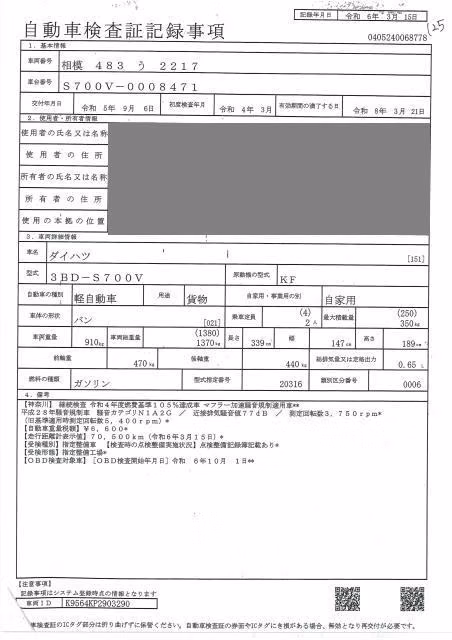 記録年月日 令和 6年 3月 15日
自動車検査証記録事項
0405240068778
1. 基本情報
車両番号 相模 483 う 2217
車台番号 S700V-0008471
交付年月日 令和 5年 9月 6日 初度検査年月 令和 4年 3月 有効期間の満了する日 令和 8年 3月 21日
2. 使用者・所有者情報
使用者の氏名又は名称
使用者の住所
所有者の氏名又は名称
所有者の住所
使用の本拠の位置
3. 車両詳細情報
車名 ダイハツ [151]
型式 3BD-S700V 原動機の型式 KF
自動車の種別 軽自動車 用途 貨物 自家用・事業用の別 自家用
車体の形状 バン [021] 乗車定員 (4) 2人 最大積載量 (250) 350kg
車両重量 910kg 車両総重量 (1380) 1370kg 長さ 339cm 幅 147cm 高さ 189cm
前軸重 470kg 後軸重 440kg 総排気量又は定格出力 0.65 L
燃料の種類 ガソリン 型式指定番号 20316 類別区分番号 0006
4. 備考
【神奈川】 継続検査 令和4年度燃費基準105%達成車 マフラー加速騒音規制適用車**
平成28年騒音規制車 騒音カテゴリN1A2G / 近接排気騒音値77dB / 測定回転数3,750rpm*
(旧基準適用時測定回転数5,400rpm)*
【自動車重量税額】¥6,600*
【走行距離計表示値】70,500km(令和6年3月15日)*
【受検種別】指定整備車 【検査時の点検整備実施状況】点検整備記録簿記載あり*
【受検形態】指定整備工場*
【OBD検査対象車】[OBD検査開始年月日]令和 6年10月 1日**
【注意事項】
記録事項はシステム登録時点の情報となります
車両ID K9564KP2903290
車検査証のICタグ部分は折り曲げずに保管ください。自動車検査証の券面やICタグに き損がある場合、無効となり再交付が必要です。